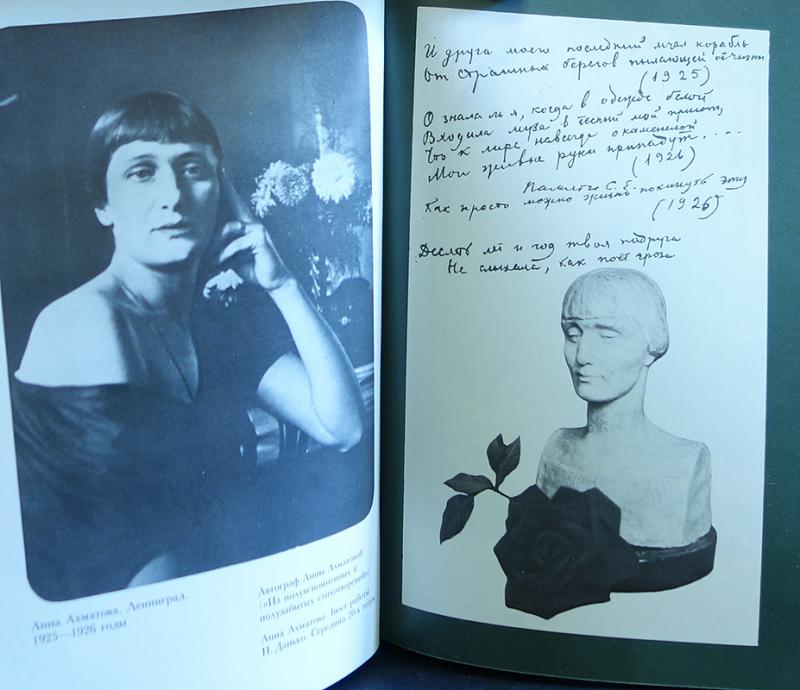 Анна Ахматова. Ленинград.
1925—1926 годы
Автограф Анны Ахматовой
(«Из полувспомненных и
полузабытых стихотворений»)
Анна Ахматова. Бюст работы
Н. Данько. Середина 20-х годов
И друга моего последний мчал корабль
От страшных берегов пылающей отчизны
(1925)
О знала ль я, когда в одежде белой
Входила муза в тесный мой приют,
Что к лире, навсегда окаменелой
Мои живые руки припадут....
(1926)
Памяти С. Е.
Как просто можно жизнь покинуть эту
(1926)
Десять лет и год твоя подруга
Не слыхала, как поёт гроза